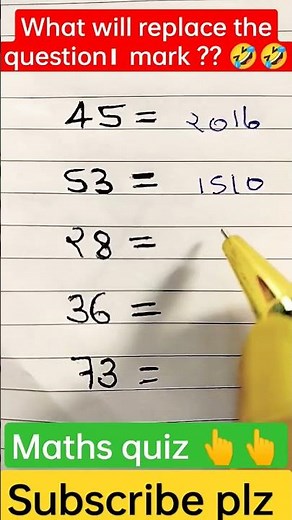 What will replace the
question mark ?? 🤣🤣
45 = 2016
53 = 1510
28 =
36 =
73 =
Maths quiz 👆👆
Subscribe plz